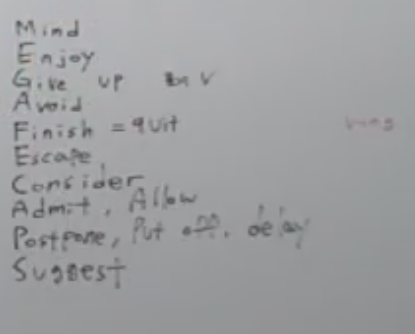 Mind
Enjoy
Give up
Avoid
Finish = quit
Escape,
Consider
Admit, Allow
Postpone, Put off, delay
Suggest